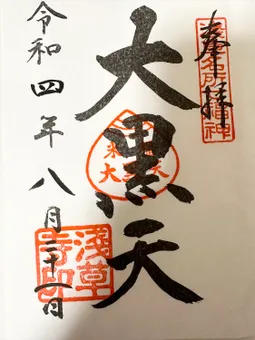 奉拝
浅草名所七福神
大黒天
令和四年八月二十一日
浅草寺印